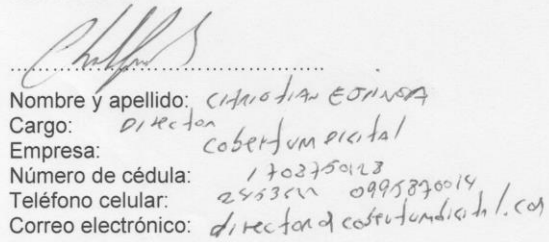 Nombre y apellido: CHRISTIAN ESPINOSA
Cargo: Director
Empresa: cobertura digital
Número de cédula: 1703750123
Teléfono celular: 0995870014
Correo electrónico: director@coberturadigital.com